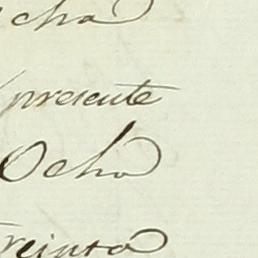 cha
presente
Ocho
Treinta